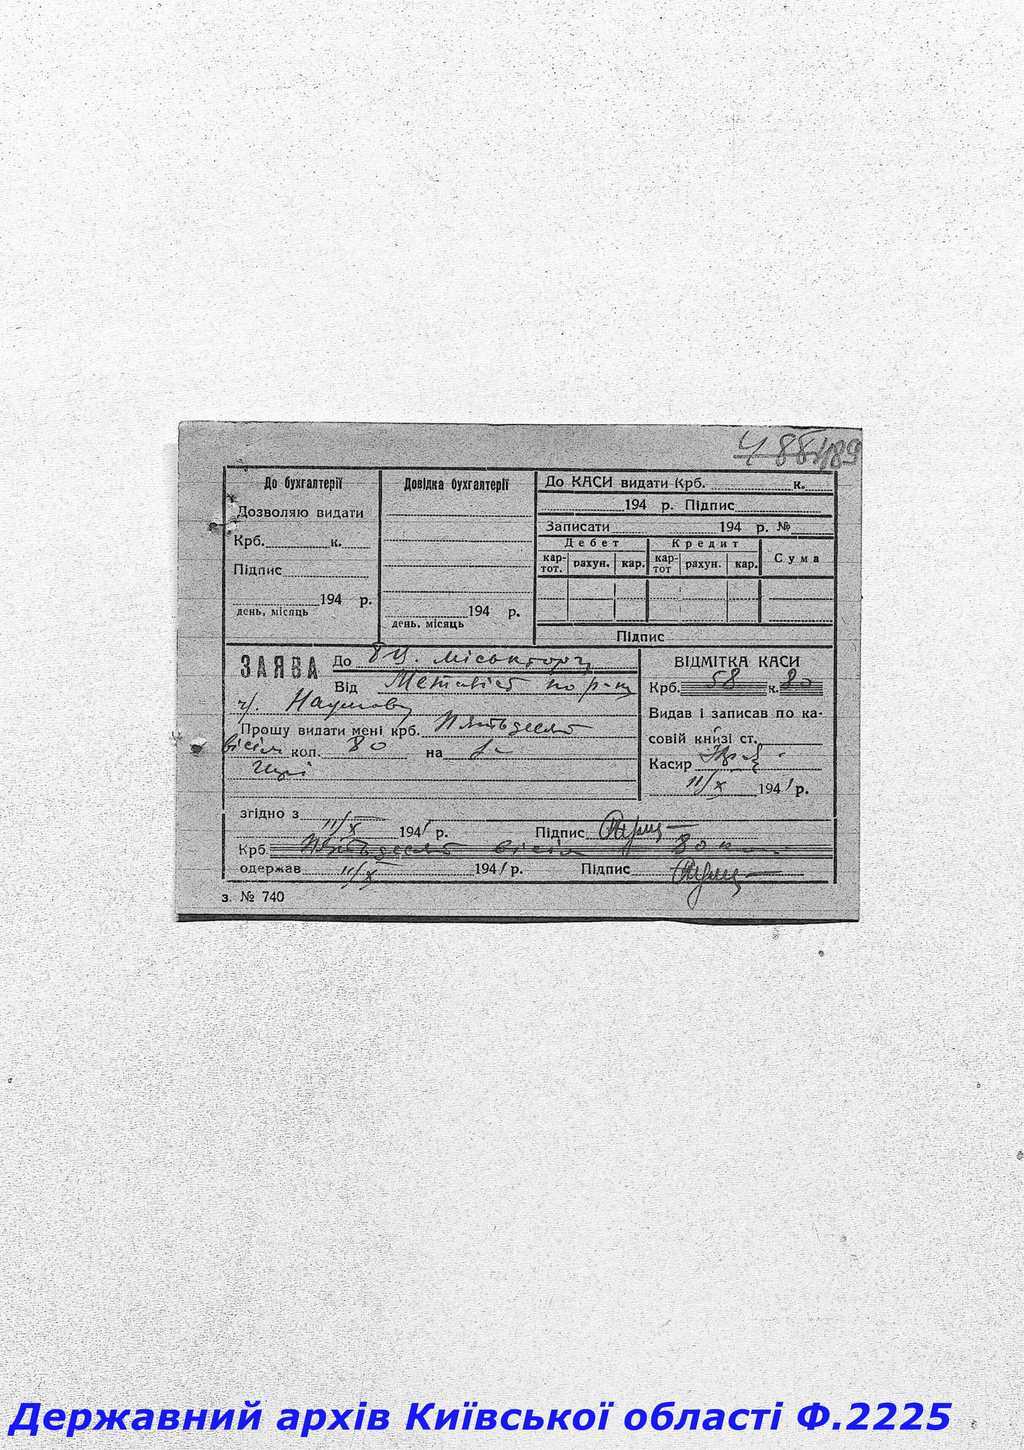 До бухгалтерії
Дозволяю видати
Крб. к.
Підпис
194 р.
день, місяць
Довідка бухгалтерії
194 р.
день, місяць
До КАСИ видати Крб. к.
194 р. Підпис
Записати 194 р. №
Дебет Кредит Сума
кар-тот. рахун. кар. кар-тот рахун. кар.
Підпис
ЗАЯВА До міськторг
Від по р-ну
Наумову
Прошу видати мені крб. Пятьдесят
вісім коп. 80 на
ВІДМІТКА КАСИ
Крб. 58 к. 80
Видав і записав по ка-
совій книзі ст.
Касир
11/X 1941 р.
згідно з
11/X 1941 р. Підпис
Крб. Пятьдесят вісім 80 коп.
одержав 11/X 1941 р. Підпис
з. № 740
Державний архів Київської області Ф.2225